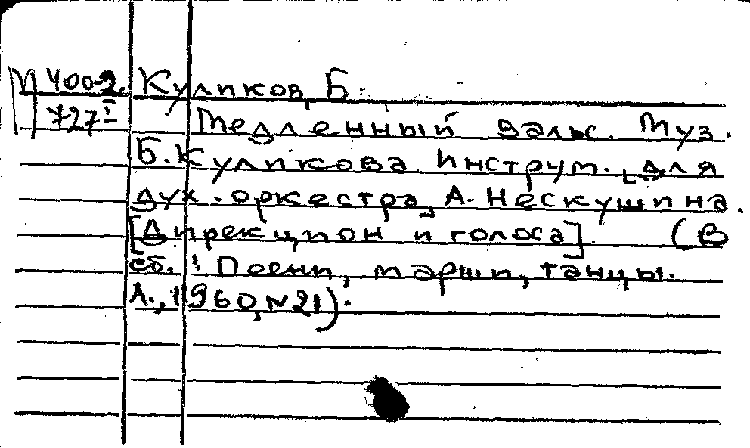 М 400-2. Куликов, Б.
727 I Медленный вальс. Муз.
Б. Куликова. Инструм. для
дух. оркестра А. Нескушина.
[Дирекцион и голоса]. (В
сб.: Песни, марши, танцы.
Л., 1960, №21).